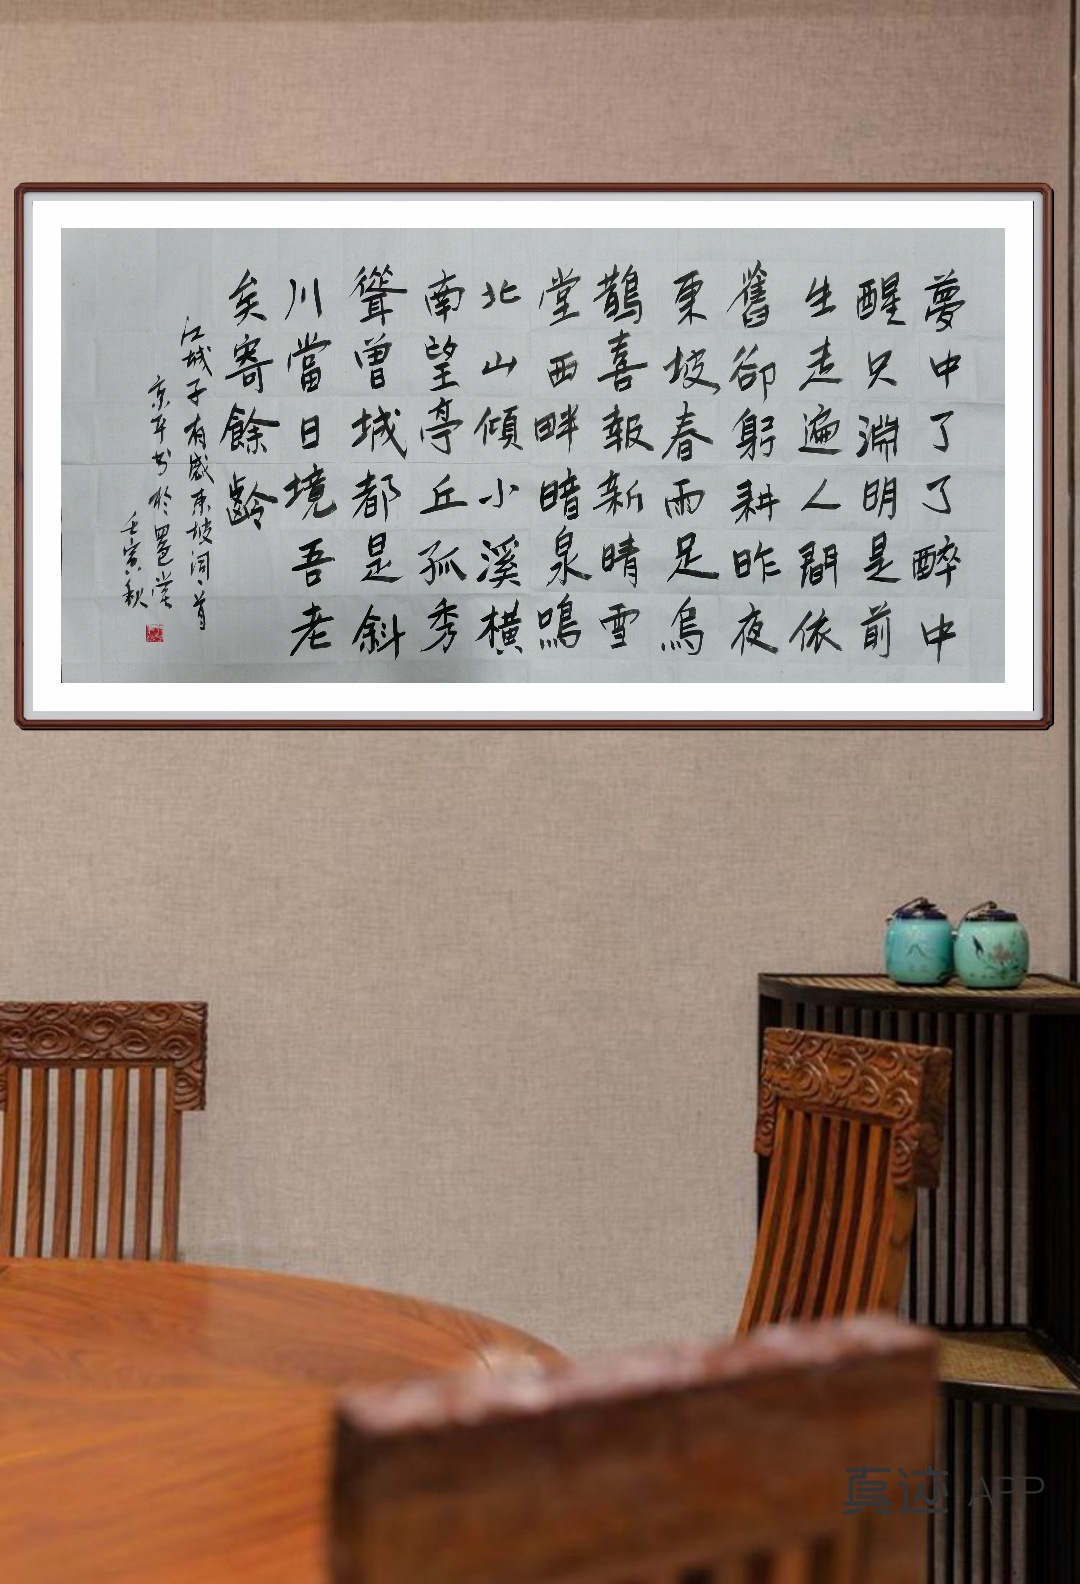 夢中了了醉中
醒只淵明是前
生走遍人間依
舊卻躬耕昨夜
東坡春雨足烏
鵲喜報新晴雪
堂西畔暗泉鳴
北山傾小溪橫
南望亭丘孤秀
聳曾城都是斜
川當日境吾老
矣寄餘齡
江城子有感東坡詞一首
京平书於墨邑堂
壬寅秋
真迹 APP